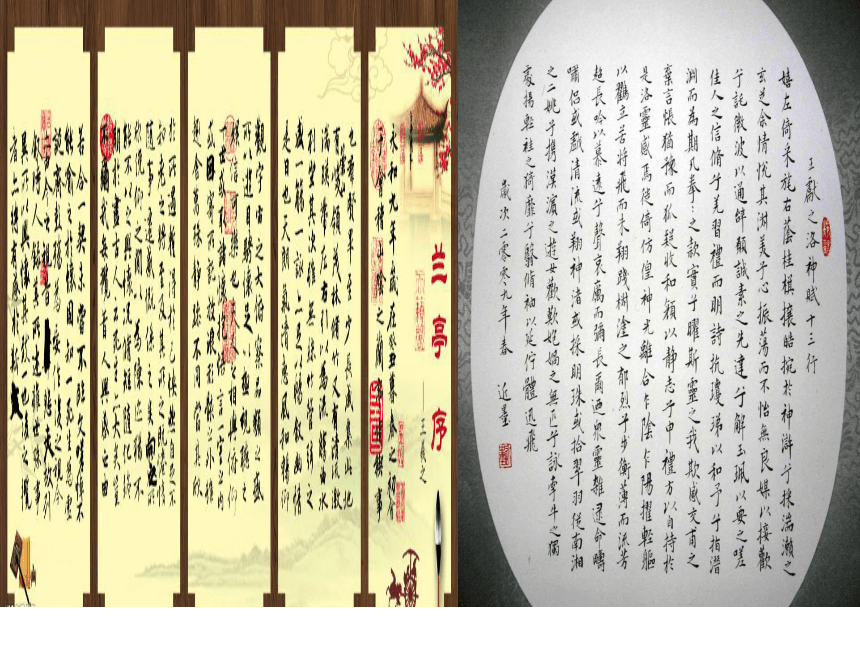 兰亭序
王羲之
永和九年歲在癸丑暮春之初會
于會稽山陰之蘭亭脩稧事
也羣賢畢至少長咸集此地
有峻領茂林脩竹又有清流激
湍暎帶左右引以為流觴曲水
列坐其次雖無絲竹管弦之
盛一觴一詠亦足以暢敘幽情
是日也天朗氣清惠風和暢仰
觀宇宙之大俯察品類之盛
所以遊目騁懷足以極視聽之
娛信可樂也夫人之相與俯仰
一世或取諸懷抱悟言一室之內
或因寄所託放浪形骸之外雖
趣舍萬殊靜躁不同當其欣
於所遇蹔得於己怏然自足不
知老之將至及其所之既惓情
隨事遷感慨係之矣向之所
欣俛仰之間以為陳跡猶不
能不以之興懷況脩短隨化終
期於盡古人云死生亦大矣豈
不痛哉每攬昔人興感之由
若合一契未嘗不臨文嗟悼不
能喻之於懷固知一死生為虛
誕齊彭殤為妄作後之視今
亦由今之視昔悲夫故列
敘時人錄其所述雖世殊事
異所以興懷其致一也後之攬
者亦將有感於斯
王獻之洛神賦十三行
嬉左倚采旄右蔭桂旗攘皓捥於神滸兮採湍瀨之
玄芝余情悅其淑美兮心振蕩而不怡無良媒以接歡
兮託微波以通辭願誠素之先達兮解玉珮以要之嗟
佳人之信脩兮羌習禮而明詩抗瓊珶以和予兮指潛
淵而為期執拳拳之款實兮懼斯靈之我欺感交甫之
棄言悵猶豫而狐疑收和顏以靜志兮申禮防以自持於
是洛靈感焉徙倚仿偟神光離合乍陰乍陽擢輕軀
以鶴立若將飛而未翔踐椒塗之郁烈兮步衡薄而流芳
超長吟以慕遠兮聲哀厲而彌長爾迺眾靈雜遝命疇
嘯侶或戲清流或翔神渚或採明珠或拾翠羽從南湘
之二姚兮攜漢濱之遊女歎匏媧之無匹兮詠牽牛之獨
處揚輕袿之猗靡兮翳脩袖以延佇體迅飛
歲次二零零九年春 近墨